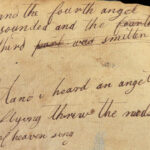 and the fourth angel
sounded and the fourth
third part was smitten
And i heard an angel
flying threw the mids
of heaven sing